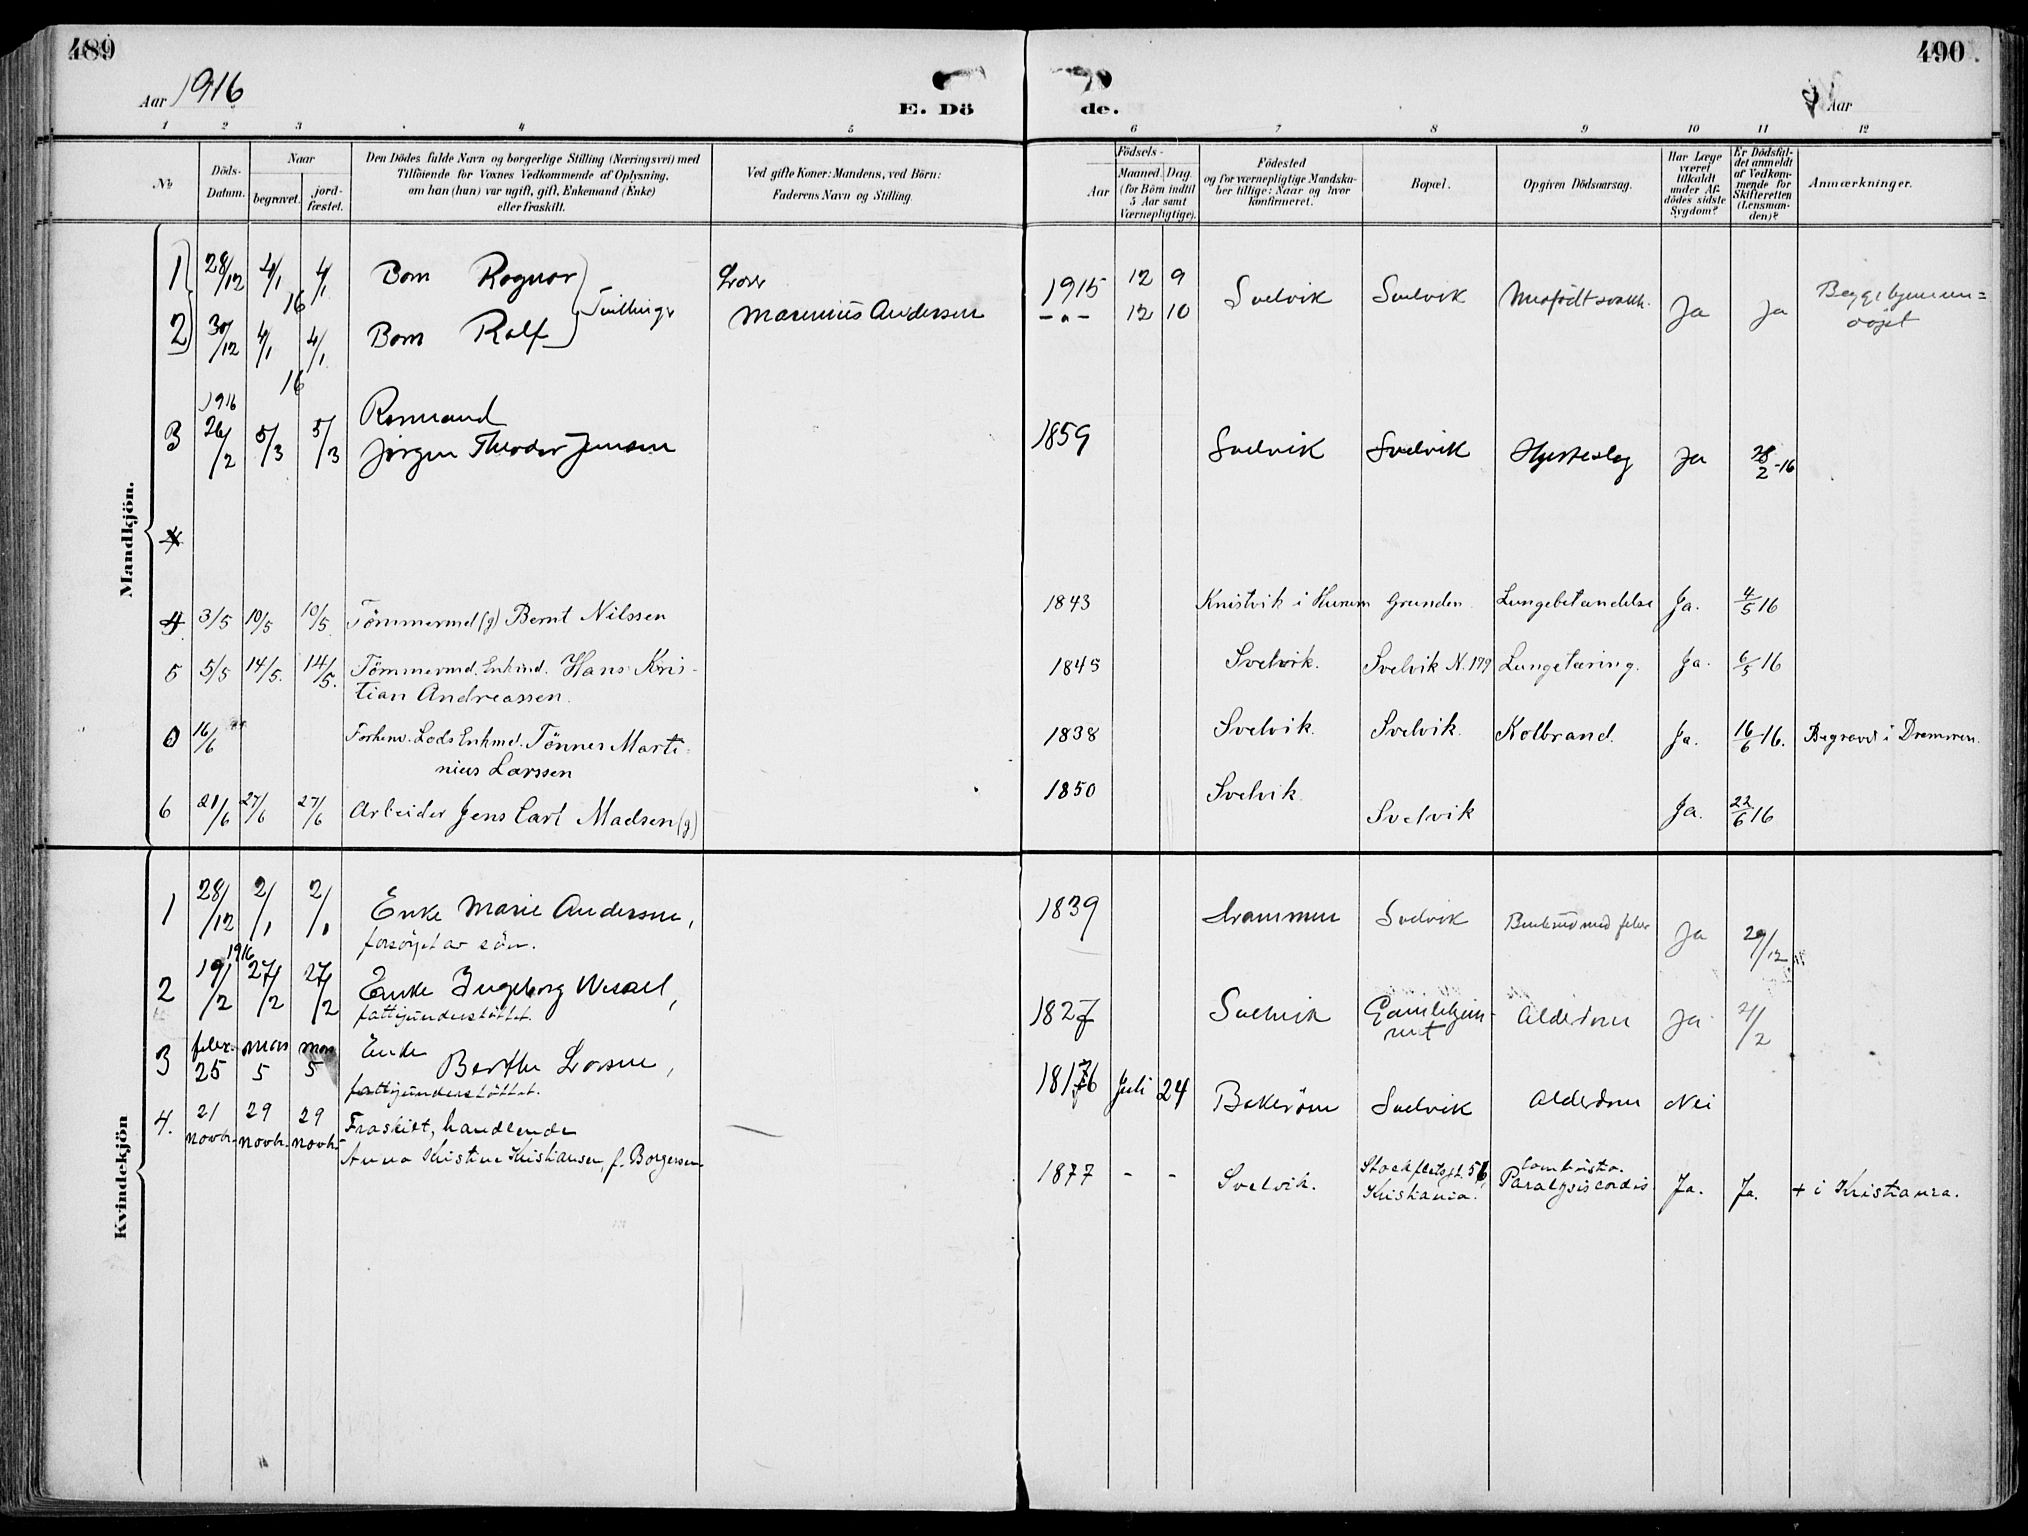 489
490
Aar 1916
E. Dö
de.
Aar
1 2 3 4 5
6 7 8 9 10 11 12
№
Döds-Datum.
Naar
begravet.
jord-fæstet.
Den Dödes fulde Navn og borgerlige Stilling (Næringsvei) med
Tilföiende for Voxnes Vedkommende af Oplysning,
om han (hun) var ugift, gift, Enkemand (Enke)
eller fraskilt.
Ved gifte Koner: Mandens, ved Börn:
Faderens Navn og Stilling.
Födsels-
Aar
Maaned. Dag.
(for Börn indtil
5 Aar samt
Værnepligtige).
Födested
og for værnepligtige Mandska-
ber tillige: Naar og hvor
konfirmeret.
Bopæl.
Opgiven Dödsaarsag.
Har Læge
været
tilkaldt
under Af-
dödes sidste
Sygdom?
Er Dödsfal-
det anmeldt
af Vedkom-
mende for
Skifteretten
(Lensman-
den)?
Anmærkninger.
Mandkjön.
1 28/12 4/1 4/1 Barn Ragnar
16
Tvillinger
Marinius Andersen
1915 12 9 Svelvik Svelvik Ja Ja
2 30/12 4/1 4/1 Barn Rolf
16
-"- 12 10
1916
3 26/2 5/3 5/3
Jørgen Theodor Jensen
1859 Svelvik Svelvik Hjerteslag Ja 28/2-16
4 3/5 10/5 10/5 Tömmermd (g) Bernt Nilssen
1843 Knistvik i Hurum Grunden. Lungebetændelse Ja. 4/5 16
5 5/5 14/5. 14/5. Tömmermd. Enkmd. Hans Kris-
tian Andreassen.
1845 Svelvik. Svelvik N. 179 Lungetæring. Ja. 6/5 16
0 16/6 Forhenv. Lods Enkmd. Tönnes Marti-
nius Larssen
1838 Svelvik. Svelvik. Kolbrand. Ja. 16/6 16. Begravet i Drammen.
6 21/6 27/6 27/6 Arbeider Jens Carl Madsen (g)
1850 Svelvik Svelvik Ja. 22/6 16
Kvindekjön
1 28/12 2/1 2/1 Enke Marie Andersen,
forsörget av sön.
1839 Drammen Svelvik Ja 29/12
1916
2 19/2 27/2 27/2 Enke Ingeborg
fattigunderstöttet.
1827 Svelvik Gamlehjem-
met Alderdom Ja 21/2
3 febr. 25 mars 5 mars 5 Enke
Berthe Larsen,
fattigunderstöttet.
1816 Juli 24 Svelvik Alderdom Nei
4. 21 novbr. 29 novbr. 29 novbr. Fraskilt, handlende
Anna Kristine Kristiansen, f. Borgersen
1877 - - Svelvik. Stockfletsgt. 56,
Kristiania. Combustio.
Paralysis cordis Ja. Ja. + i Kristiania.